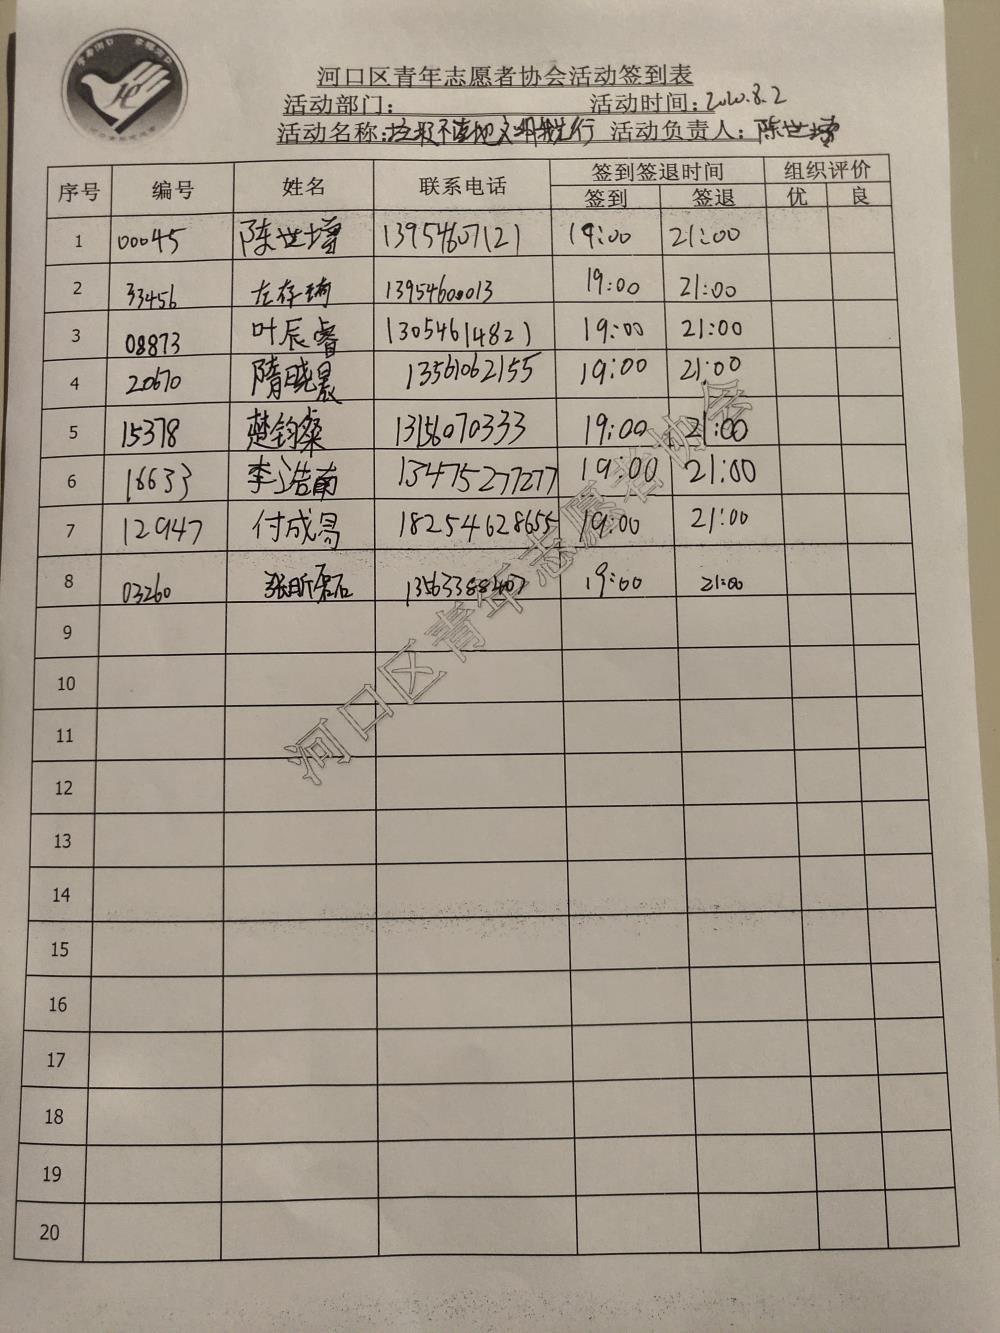 河口区青年志愿者协会活动签到表
活动部门： 活动时间：2020.8.2
活动名称：垃圾不落地文明我先行 活动负责人：陈世增
序号 编号 姓名 联系电话 签到签退时间 组织评价
签到 签退 优 良
1 00045 陈世增 13954607121 19:00 21:00
2 33456 左存琦 13954600013 19:00 21:00
3 08873 叶辰睿 13054614821 19:00 21:00
4 20670 隋晓晟 13561062155 19:00 21:00
5 15378 楚钧燊 13156070333 19:00 21:00
6 16633 李浩南 13475277277 19:00 21:00
7 12947 付成易 18254628655 19:00 21:00
8 03260 张昕磊 19:00 21:00
9
10
11
12
13
14
15
16
17
18
19
20
河口区青年志愿者协会